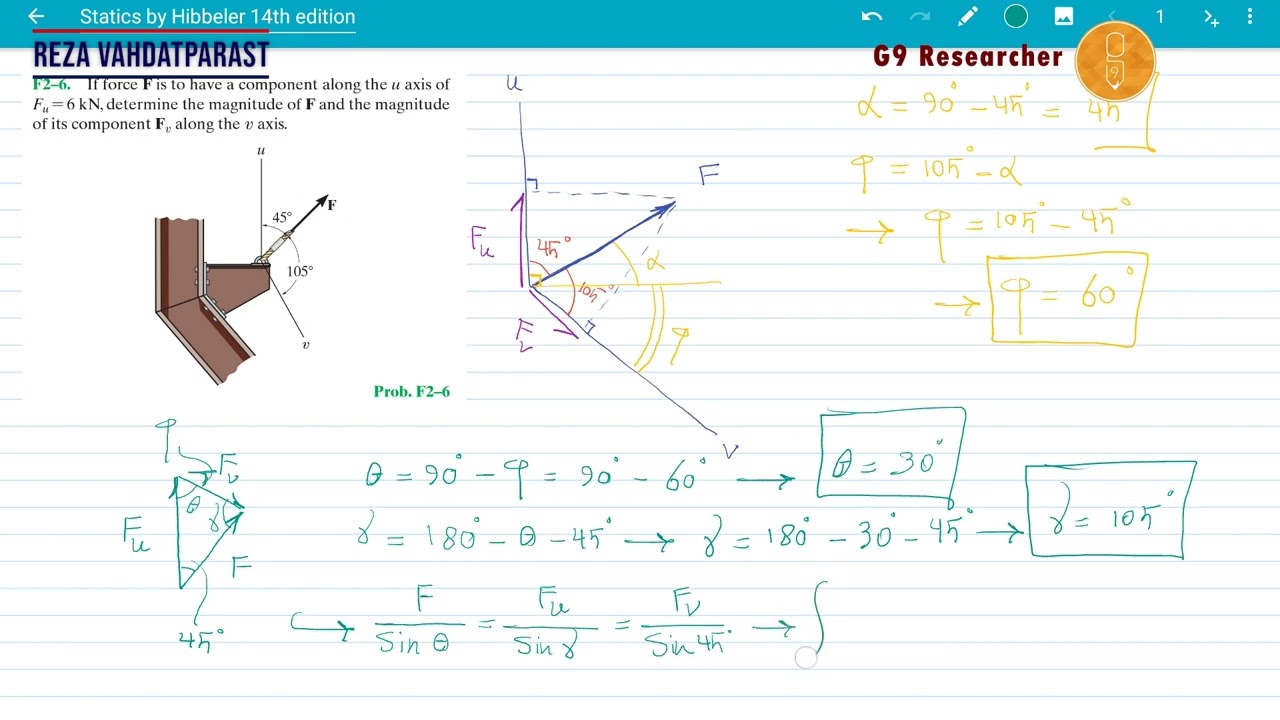 Statics by Hibbeler 14th edition
1
REZA VAHDATPARAST
G9 Researcher
g
9
F2–6. If force F is to have a component along the u axis of
F_u = 6 kN, determine the magnitude of F and the magnitude
of its component F_v along the v axis.
u
45°
F
105°
v
Prob. F2–6
u
F
F_u
45°
α
105°
F_2
φ
v
α = 90° - 45° = 45°
φ = 105° - α
→ φ = 105° - 45°
→ φ = 60°
φ
F_v
θ
γ
F_u
F
45°
θ = 90° - φ = 90° - 60° → θ = 30°
γ = 180° - θ - 45° → γ = 180° - 30° - 45° → γ = 105°
↪ F / Sin θ = F_u / Sin γ = F_v / Sin 45° → {